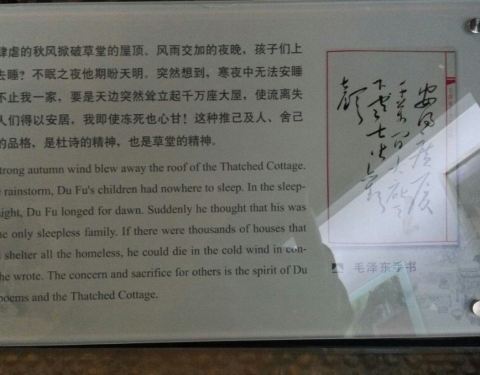 肆虐的秋风掀破草堂的屋顶。风雨交加的夜晚，孩子们上
去睡？不眠之夜他期盼天明。突然想到，寒夜中无法安睡
不止我一家，要是天边突然耸立起千万座大屋，使流离失
人们得以安居，我即使冻死也心甘！这种推己及人、舍己
的品格，是杜诗的精神，也是草堂的精神。
trong autumn wind blew away the roof of the Thatched Cottage.
rainstorm, Du Fu's children had nowhere to sleep. In the sleep-
ight, Du Fu longed for dawn. Suddenly he thought that his was
e only sleepless family. If there were thousands of houses that
shelter all the homeless, he could die in the cold wind in con-
he wrote. The concern and sacrifice for others is the spirit of Du
poems and the Thatched Cottage.
安得廣厦
毛泽东手书